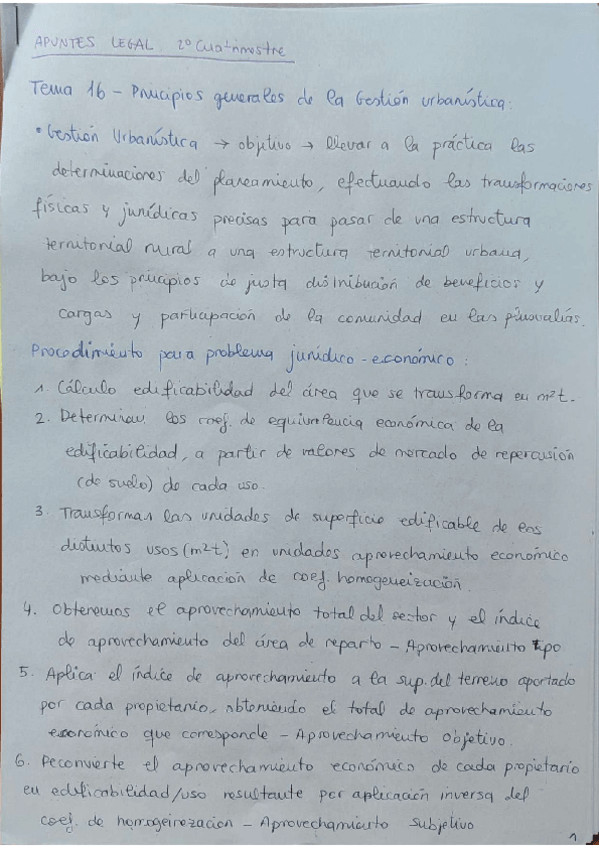 APUNTES LEGAL 2º Cuatrimestre
Tema 16 – Principios generales de la Gestión urbanística:
• Gestión Urbanística → objetivo → llevar a la práctica las
determinaciones del planeamiento, efectuando las transformaciones
físicas y jurídicas precisas para pasar de una estructura
territorial rural a una estructura territorial urbana,
bajo los principios de justa distribución de beneficios y
cargas y participación de la comunidad en las plusvalías.
Procedimiento para problema jurídico-económico:
1. Cálculo edificabilidad del área que se transforma en m²t.
2. Determinar los coef. de equivalencia económica de la
edificabilidad, a partir de valores de mercado de repercusión
(de suelo) de cada uso.
3. Transforman las unidades de superficie edificable de los
distintos usos (m²t) en unidades aprovechamiento económico
mediante aplicación de coef. homogeneización.
4. Obtenemos el aprovechamiento total del sector y el índice
de aprovechamiento del área de reparto – Aprovechamiento tipo
5. Aplica el índice de aprovechamiento a la sup. del terreno aportado
por cada propietario, obteniendo el total de aprovechamiento
económico que corresponde – Aprovechamiento Objetivo.
6. Reconvierte el aprovechamiento económico de cada propietario
en edificabilidad/uso resultante por aplicación inversa del
coef. de homogeinozacion – Aprovechamiento Subjetivo
1